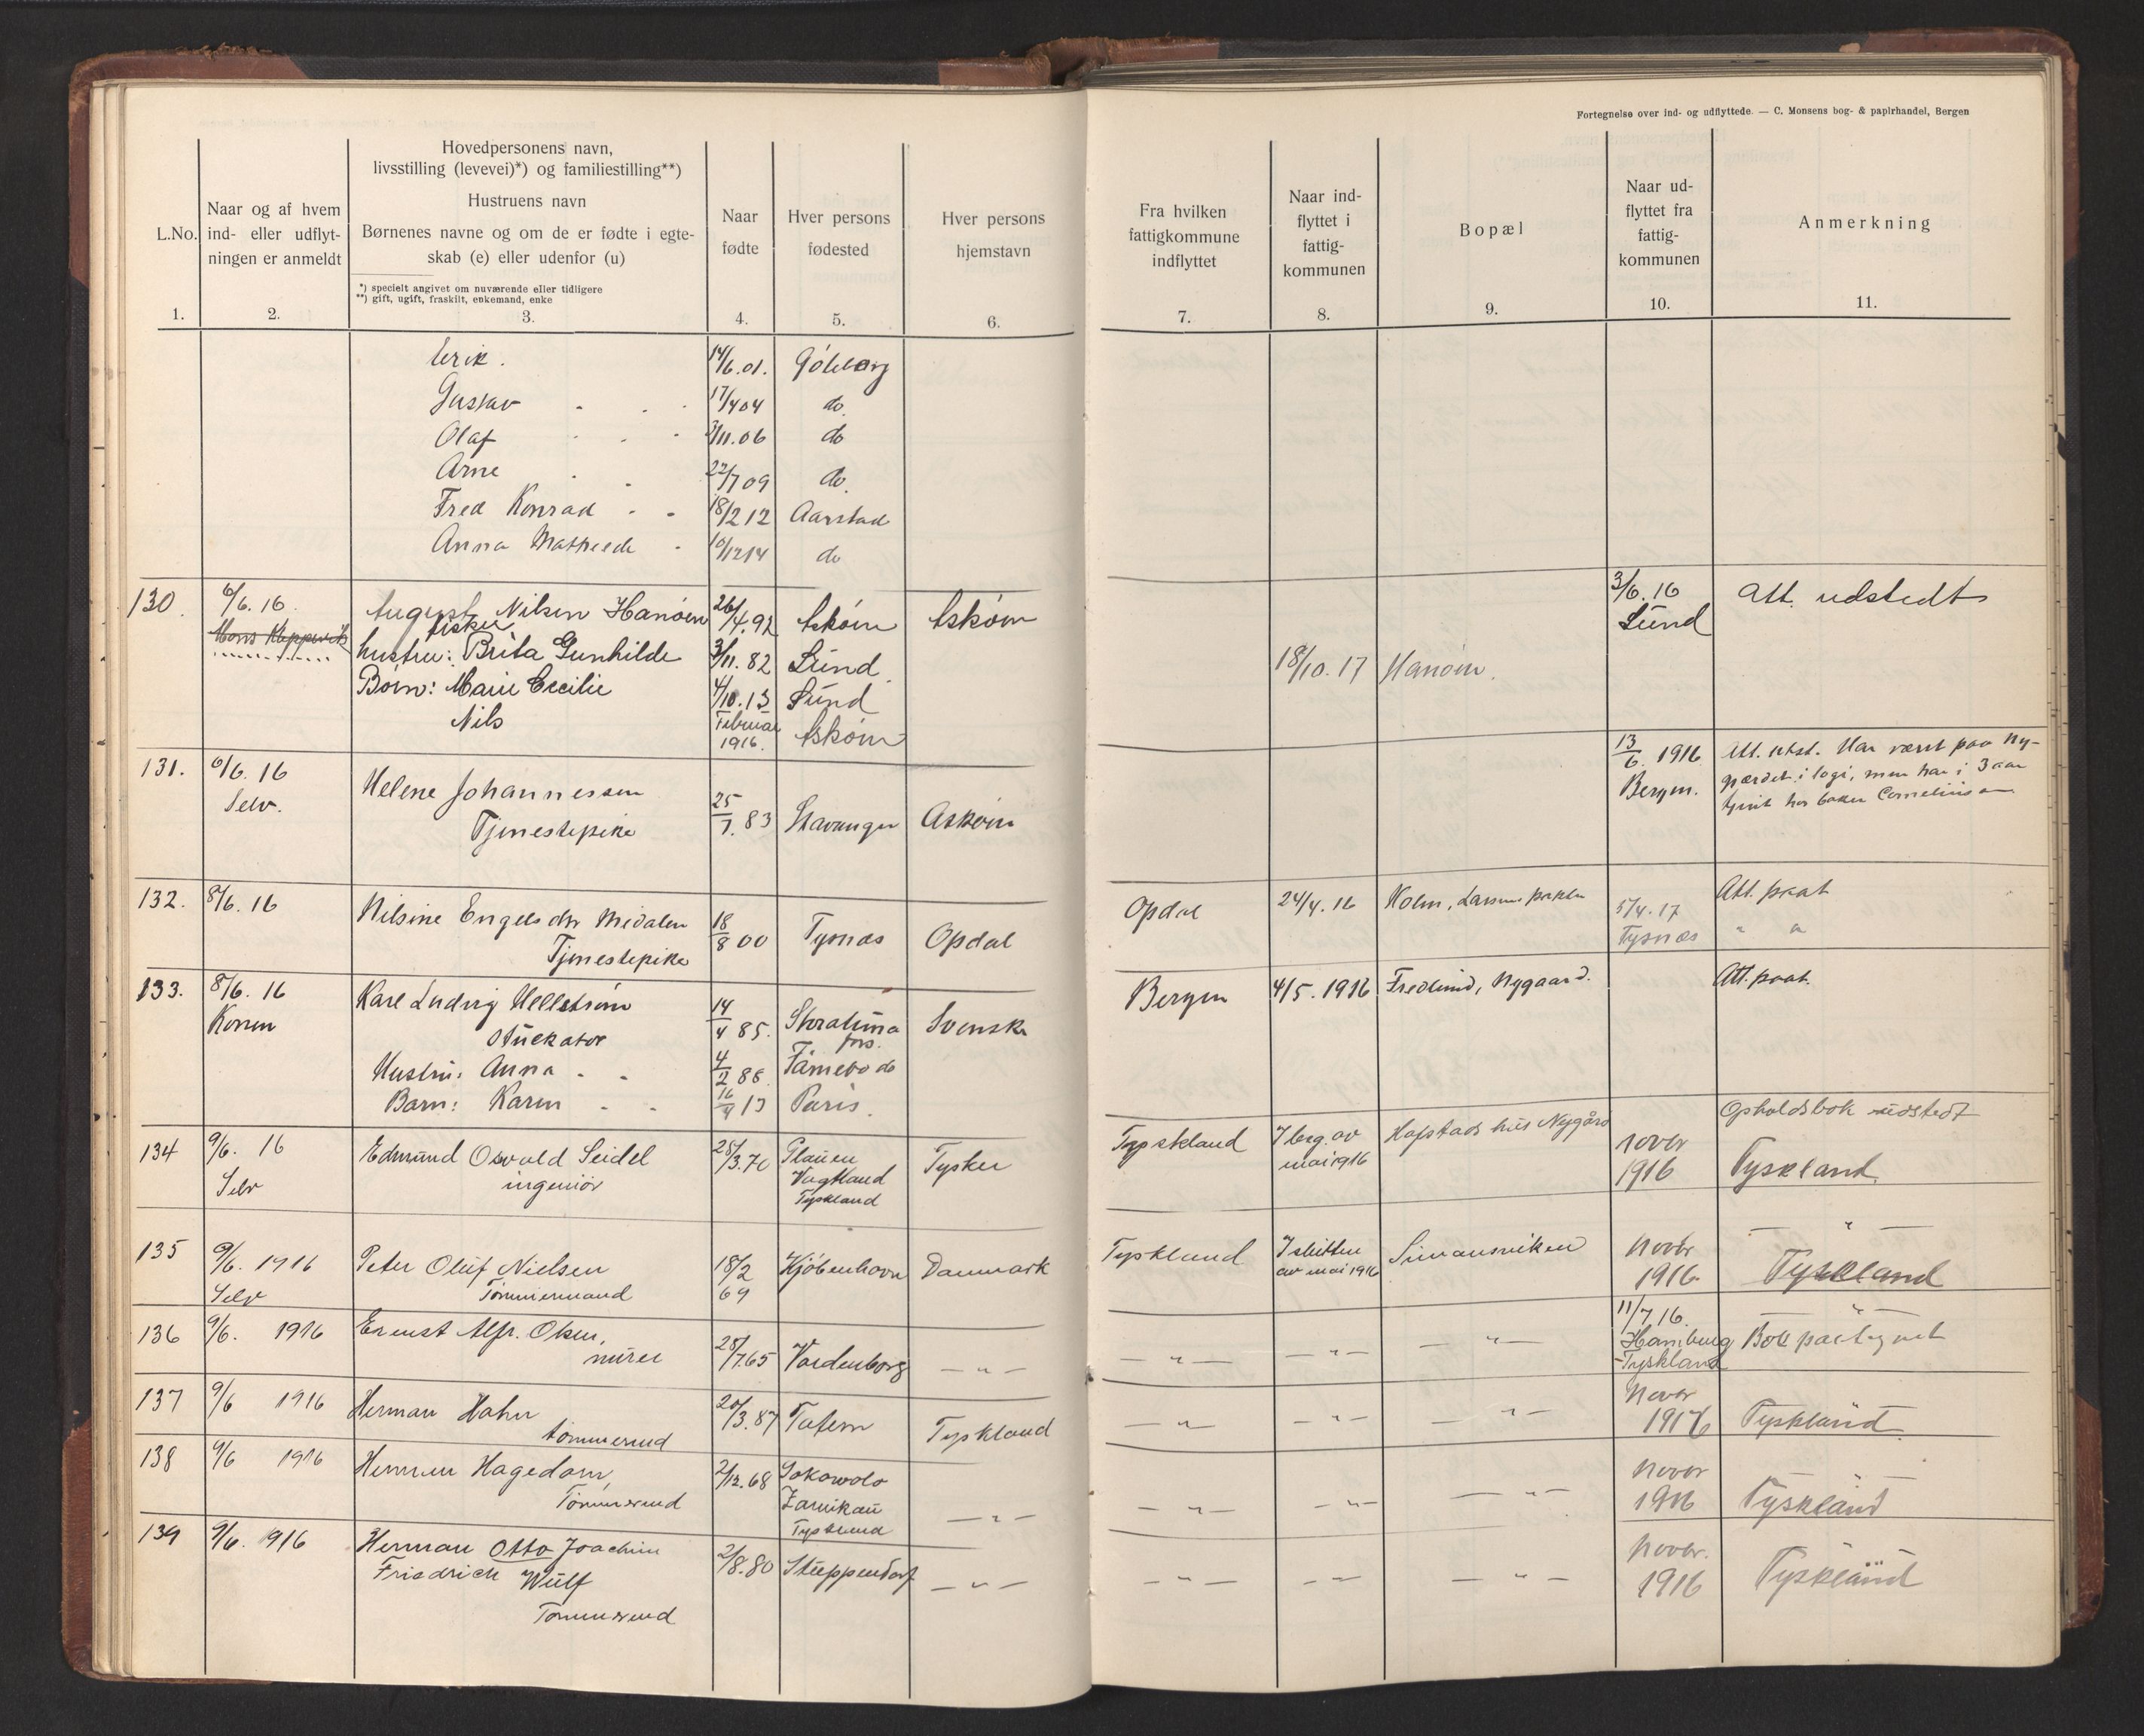 Fortegnelse over ind- og udflyttede. — C. Monsens bog- & papirhandel, Bergen
L.No.
1.
Naar og af hvem
ind- eller udflyt-
ningen er anmeldt
2.
Hovedpersonens navn,
livsstilling (levevei)*) og familiestilling**)
Hustruens navn
Børnenes navne og om de er fødte i egte-
skab (e) eller udenfor (u)
*) specielt angivet om nuværende eller tidligere
**) gift, ugift, fraskilt, enkemand, enke
3.
Naar
fødte
4.
Hver persons
fødested
5.
Hver persons
hjemstavn
6.
Fra hvilken
fattigkommune
indflyttet
7.
Naar ind-
flyttet i
fattig-
kommunen
8.
Bopæl
9.
Naar ud-
flyttet fra
fattig-
kommunen
10.
Anmerkning
11.
Erik. 14/6.01.
Gustav 17/4 04 do.
Olaf /11.06 do
Arne 22/7 09 do.
Fred Konrad 18/2 12 Aarstad
Anna 10/12 14 do
130. 6/6.16. August Nilsen Hanøen 26/4.92 Askøen Askøen 3/6.16 Att. udstedt
Mons Kleppevik fisker Lund
hustru: Brita Gunhilde 3/11.82 Lund 18/10.17 Hanøen.
Børn: Marie Cecilie 4/10.13 Lund
Nils Februar 1916. Askøen
131. 6/6.16 Helene Johannessen 25/7.83 Stavanger Askøen 13/6. 1916 Att. utst. Har været paa Ny-
Selv. Tjenestepike Bergen. gærdet i logi, men har i 3 aar
tjent hos baker Cornelius
132. 8/6.16 Nilsine Engels dtr Midalen 18/8 00 Tysnæs Opdal Opdal 24/4.16 Holm, 5/4.17 Att. paat
Tjenestepike Tysnæs " "
133. 8/6.16 Karl Ludvig Hellstrøm 14/4 85. Svensk Bergen 4/5.1916 Fredlund, Nygaard. Att. paat.
Konen Stuckatør fors.
Hustru: Anna 4/2 86
Barn: Karin 16/9 13 Paris.
134 9/6. 16 Edmund Osvald Seidel 28/3.70 Plauen Tysker Tyskland I beg. av Hafstads hus Nygård Novbr Opholdsbok udstedt
Selv ingeniør Vogtland mai 1916 1916 Tyskland
Tyskland
135 9/6. 1916 Peter Oluf Nielsen 18/2 69 Kjøbenhavn Danmark Tyskland I slutten Simonsviken Novbr — " —
Selv Tømmermand av mai 1916 1916 Tyskland
136 9/6. 1916 Ernst Alfr. Olsen, 28/7 65 Vordenborg — " — — " — — " — — " — 11/7.16. — " —
murer Hamburg Bok paategnet
Tyskland
137 9/6 1916 Herman Hahn 20/3.87 Tyskland — " — — " — — " — Novbr
tømmermd 1916 Tyskland
138 9/6 1916 Herman Hagedorn, 2/12.68 — " — — " — — " — — " — Novbr
Tømmermd 1916 Tyskland
Tyskland
139 9/6. 1916 Herman Otto Joachim 2/8.80 — " — — " — — " — — " — Novbr.
Friedrich Wulf 1916 Tyskland
Tømmermd